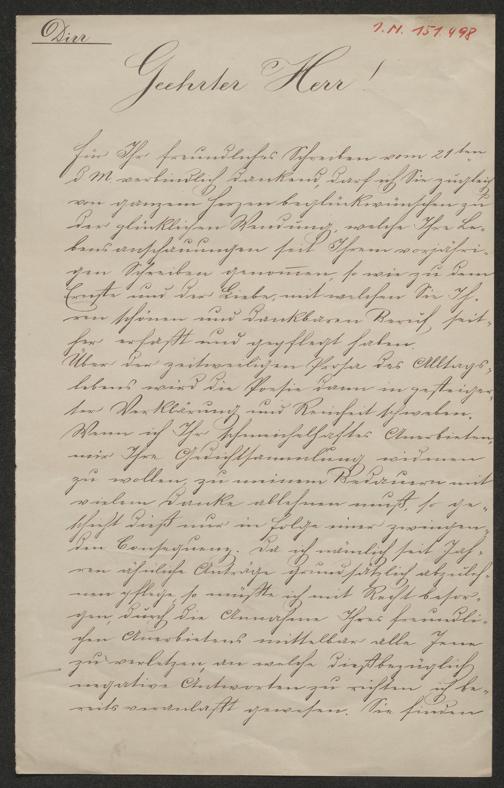 Dirr
I.N. 151.498
Geehrter Herr!
Für Ihr freundliches Schreiben vom 21ten
d M. verbindlich dankend, darf ich Sie zugleich
von ganzem Herzen beglückwünschen zu
der glücklichen Wendung, welche Ihre Le-
bensanschauungen seit Ihrem vorjähri-
gen Schreiben genommen, so wie zu dem
Ernste und der Liebe, mit welchen Sie Ih-
ren schönen und dankbaren Beruf seit-
her erfaßt und gepflegt haben.
Über der zeitweiligen Prosa des Alltags-
lebens wird die Poesie dann in gesteiger-
ter Verklärung und Reinheit schweben.
Wenn ich Ihr schmeichelhaftes Anerbieten,
mir Ihre Gedichtsammlung widmen
zu wollen, zu meinem Bedauern mit
vielem Danke ablehnen muß, so ge-
schieht dieß nur in Folge einer zwingen-
den Consequenz. Da ich nämlich seit Jah-
ren ähnliche Anträge grundsätzlich abzuleh-
nen pflege, so müßte ich mit Recht besor-
gen, durch die Annahme Ihres freundli-
chen Anerbietens mittelbar alle Jene
zu verletzen, an welche dießbezüglich
negative Antworten zu richten ich be-
reits veranlaßt gewesen. Sie finden